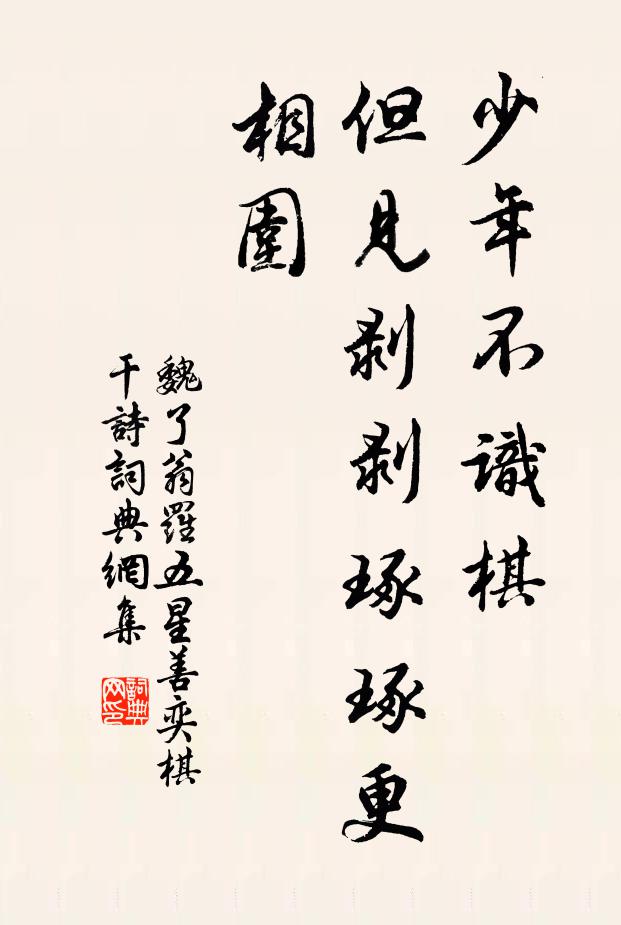 少年不識棋
但見剥剥琢琢更
相圍
魏了翁羅五星善奕棋
干詩詞典網集
詞典
网印